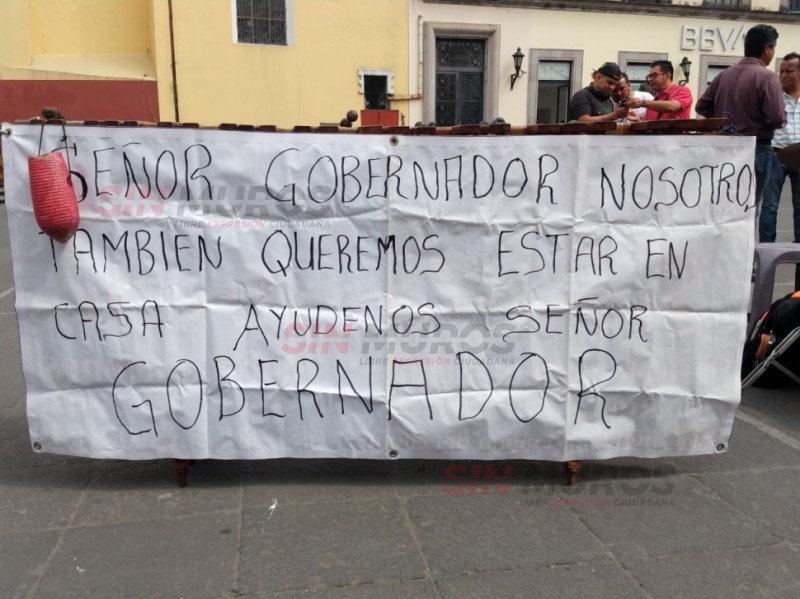 BBVA
SEÑOR GOBERNADOR NOSOTROS
TAMBIEN QUEREMOS ESTAR EN
CASA AYUDENOS SEÑOR
GOBERNADOR
SIN MUROS
LIBRE EXPRESIÓN CIUDADANA
SIN MUROS
LIBRE EXPRESIÓN CIUDADANA
SIN MUROS
LIBRE EXPRESIÓN CIUDADANA